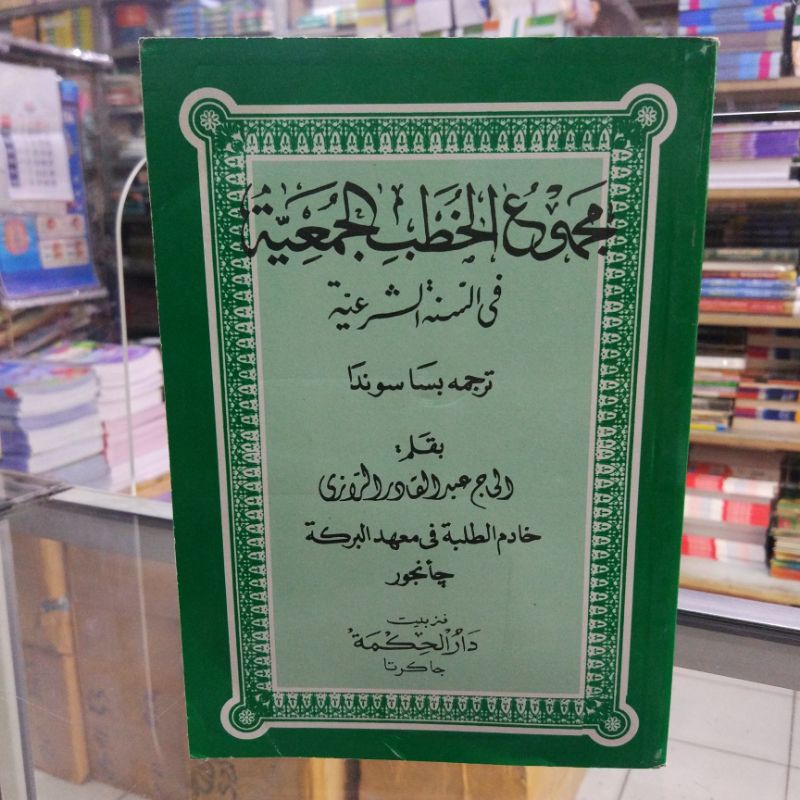 مجموع الخُطَبِ الجُمُعِيَّة
في السنة الشرعية
ترجمه بسا سوندا
بقلم :
الحاج عبد القادر الرازى
خادم الطلبة في معهد البركة
چأنجور
فنربيت
دَارُ الْحِكْمَةُ
جاكرتا